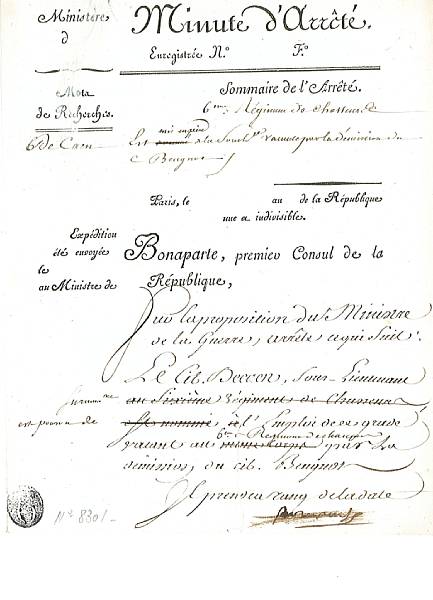 Ministère
d
Minute d'Arrêté.
Enregistrée N.° F.°
Mota
de Recherches.
Sommaire de l'Arrêté.
6me Régiment de Chasseurs
6 de Caen
Est à la Sous vacante par la démission du
C Beugnot
Paris, le au de la République
une et indivisible.
Expédition
été envoyée
le
au Ministre de
Bonaparte, premier Consul de la
République,
Sur la proposition du Ministre
de la Guerre, arrête ce qui suit:
Le Cit. Sous-Lieutenant
au Sixième Régiment de Chasseurs
est pourvu de
à l'Emploi de ce grade
6e Régiment de chasseurs
vacant au même Corps par la
démission, du cit. Beugnot
Il prendra rang de la date
N° 8301-